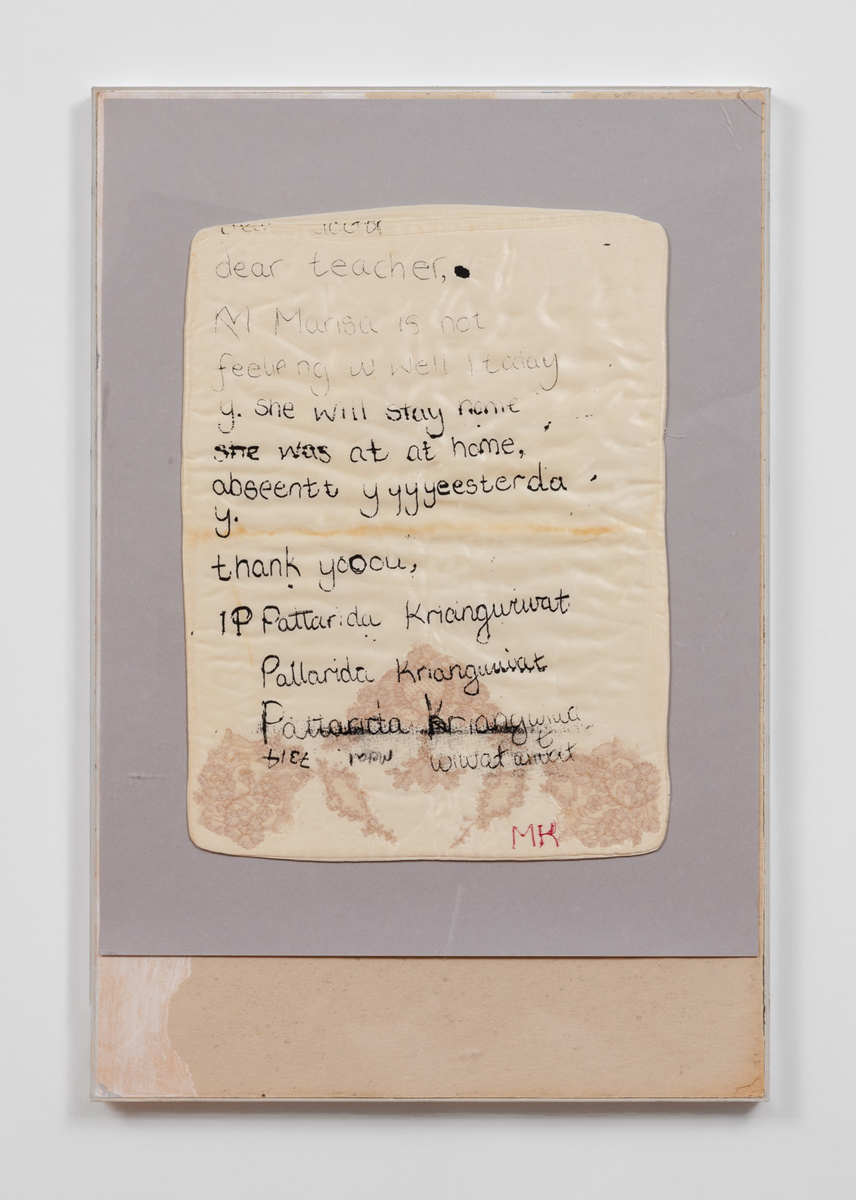 dear teacher,
M Marisa is not
feeling w well t today
y. she will stay home
she was at at home,
abseentt y yyyeesterda
y.
thank yooou,
1P Pattarida Kriangwiwat
Pattarida Kriangwiwat
Pattarida Kriangwiwa
wiwat
MK